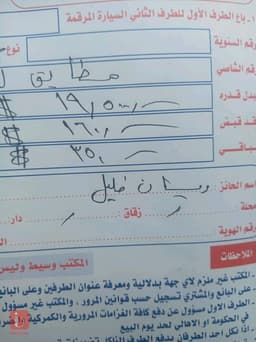 ١- باع الطرف الأول للطرف الثاني السيارة المرقمة
رقم السنوية
نوع
رقم الشاصي مطابق
بدل قدره ١٩,٥٠٠ $
قبض ١٦٠,٠ $
باقي ٣٥,٠ $
اسم الحائز: خليل
محلة / زقاق / دار:
رقم الهوية
الملاحظات
المكتب وسيط وليس
- المكتب غير ملزم لاي جهة بدلالية ومعرفة عنوان الطرفين وعلى البائع
- على البائع والمشتري تسجيل حسب قوانين المرور ، والمكتب غير مسؤول
- الطرف الاول مسؤول عن دفع كافة الغرامات المرورية والكمركية
في الحكومة او الاهالي لحد يوم البيع
- اذا نكل احد الطرفان يدفع الطرف الناكل